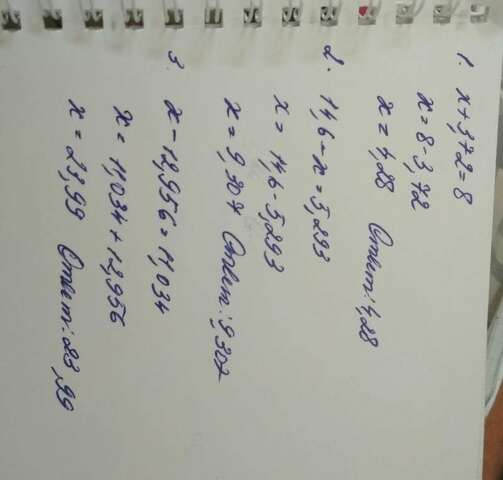 1. x+3,72=8
x=8-3,72
x=4,28 Ответ: 4,28
2. 14,6-x=5,293
x=14,6-5,293
x=9,307 Ответ: 9,307
3. x-12,956=11,034
x=11,034+12,956
x=23,99 Ответ: 23,99